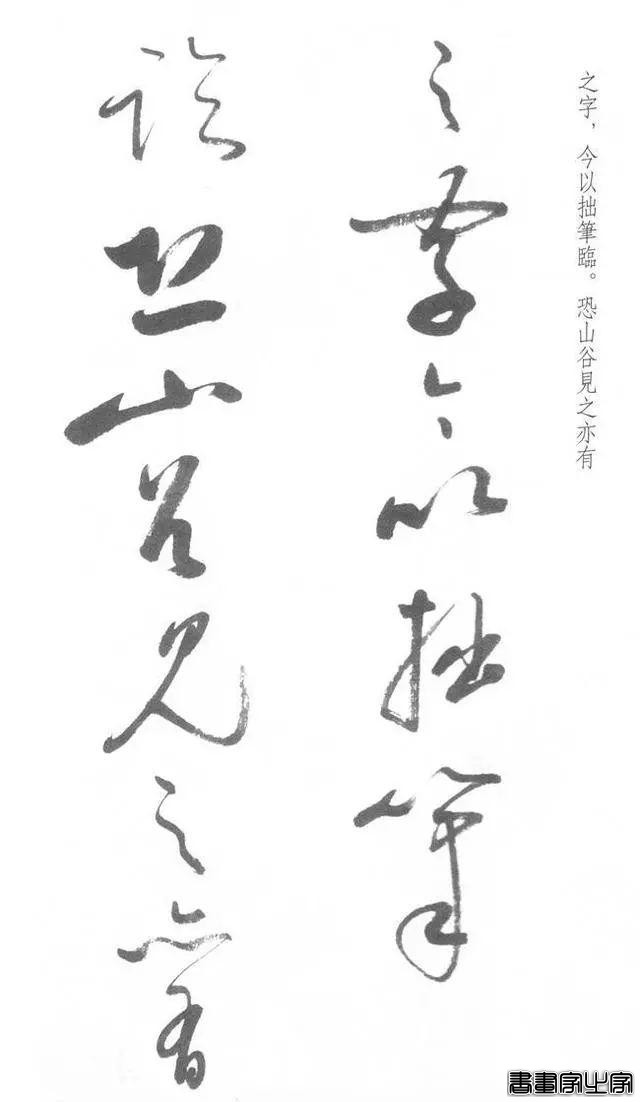 之字，今以拙筆臨。恐山谷見之亦有
之字今以拙筆
臨恐山谷見之亦有
書畫家必家